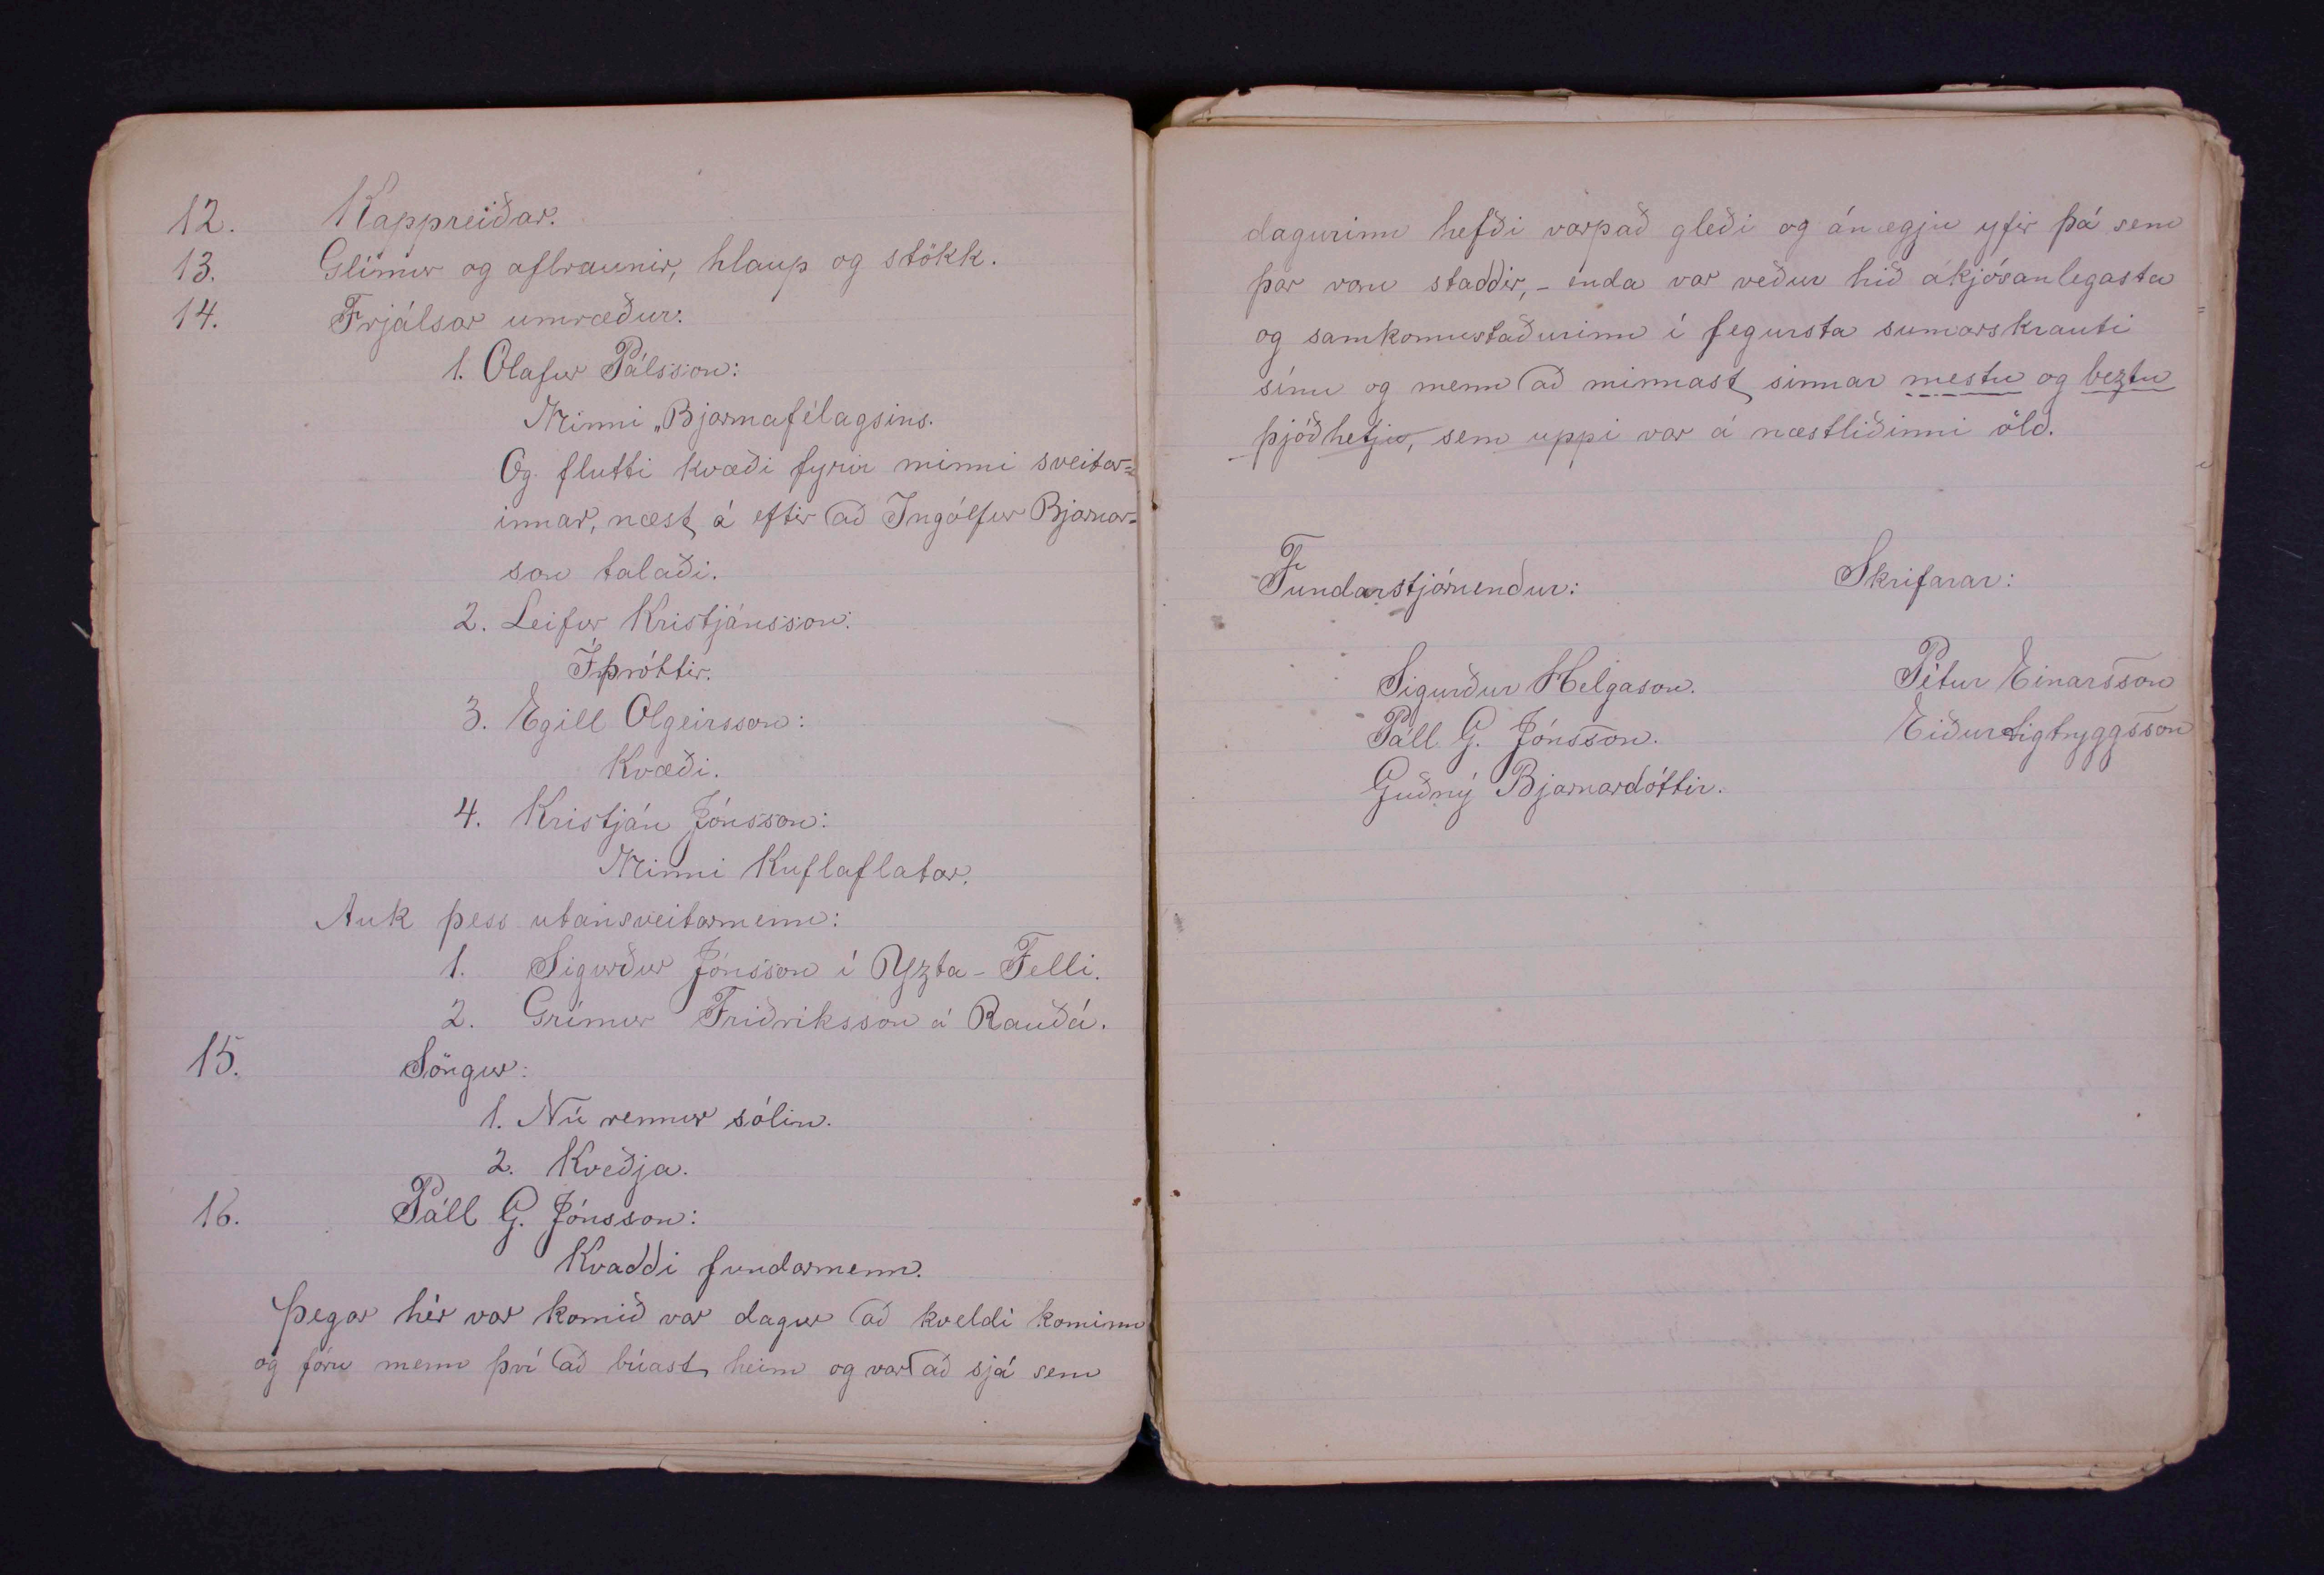 12. Kappreiðar.
13. Glímur og aflraunir, hlaup og stökk.
14. Frjálsar umræður.
1. Olafur Pálsson:
Minni „Bjarmafélagsins.
Og flutti kvæði fyrir minni sveitar=
innar, næst á eftir að Ingólfur Bjarnar=
son talaði.
2. Leifur Kristjánsson:
Íþróttir.
3. Egill Olgeirsson:
Kvæði.
4. Kristján Jónsson:
Minni Kuflaflatar.
Auk þess utansveitarmenn:
1. Sigurður Jónsson í Yzta-Felli.
2. Grímur Friðriksson á Rauðá.
15. Söngur:
1. Nú rennur sólin.
2. Kveðja.
16. Páll G. Jónsson:
Kvaddi fundarmenn.
Þegar hér var komið var dagur að kveldi kominn
og fóru menn því að búast heim og var að sjá sem
dagurinn hefði varpað gleði og ánægju yfir þá sem
þar voru staddir, - enda var veður hið ákjósanlegasta
og samkomustaðurinn í fegursta sumarskrauti
sínu og menn að minnast sinnar mestu og beztu
þjóðhetju, sem uppi var á næstliðinni öld.
Fundarstjórnendur: Skrifarar:
Sigurður Helgason. Pétur Einarsson
Páll G. Jónsson. Eiður Sigtryggsson
Guðný Bjarnardóttir.